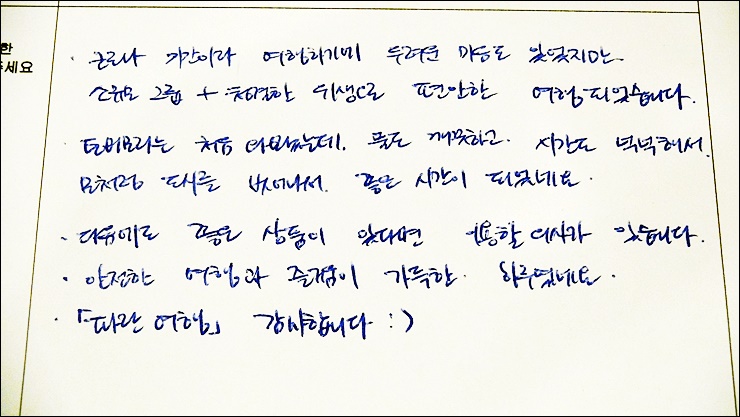 한
주세요
· 코로나 기간이라 여행하기에 두려운 마음도 있었지만
소규모 그룹 + 철저한 위생으로 편안한 여행 되었습니다.
는 처음 와봤는데. 물도 깨끗하고. 시간도 넉넉해서.
모처럼 도시를 벗어나서. 좋은 시간이 되었네요.
· 다음에도 좋은 상품이 있다면 이용할 의사가 있습니다.
· 안전한 여행과 즐거움이 가득한. 하루였네요.
· 「파란 여행」 감사합니다 :)